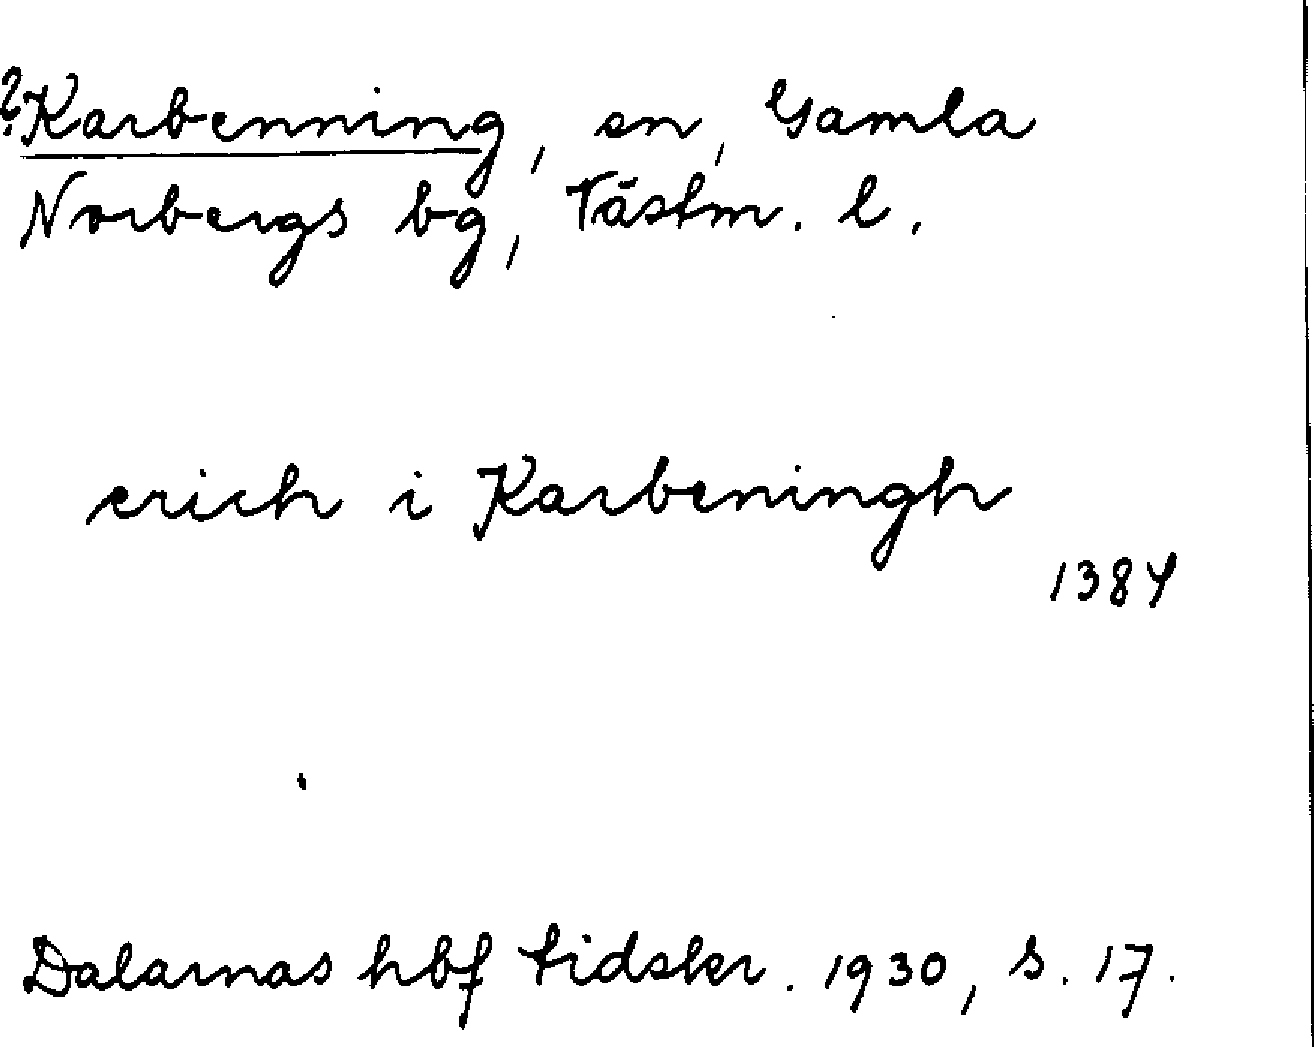 ?Karbenning, sn, Gamla
Norbergs bg, Västm. l.
erich i Karbeningh
1384
Dalarnas hbf tidskr. 1930, s. 17.